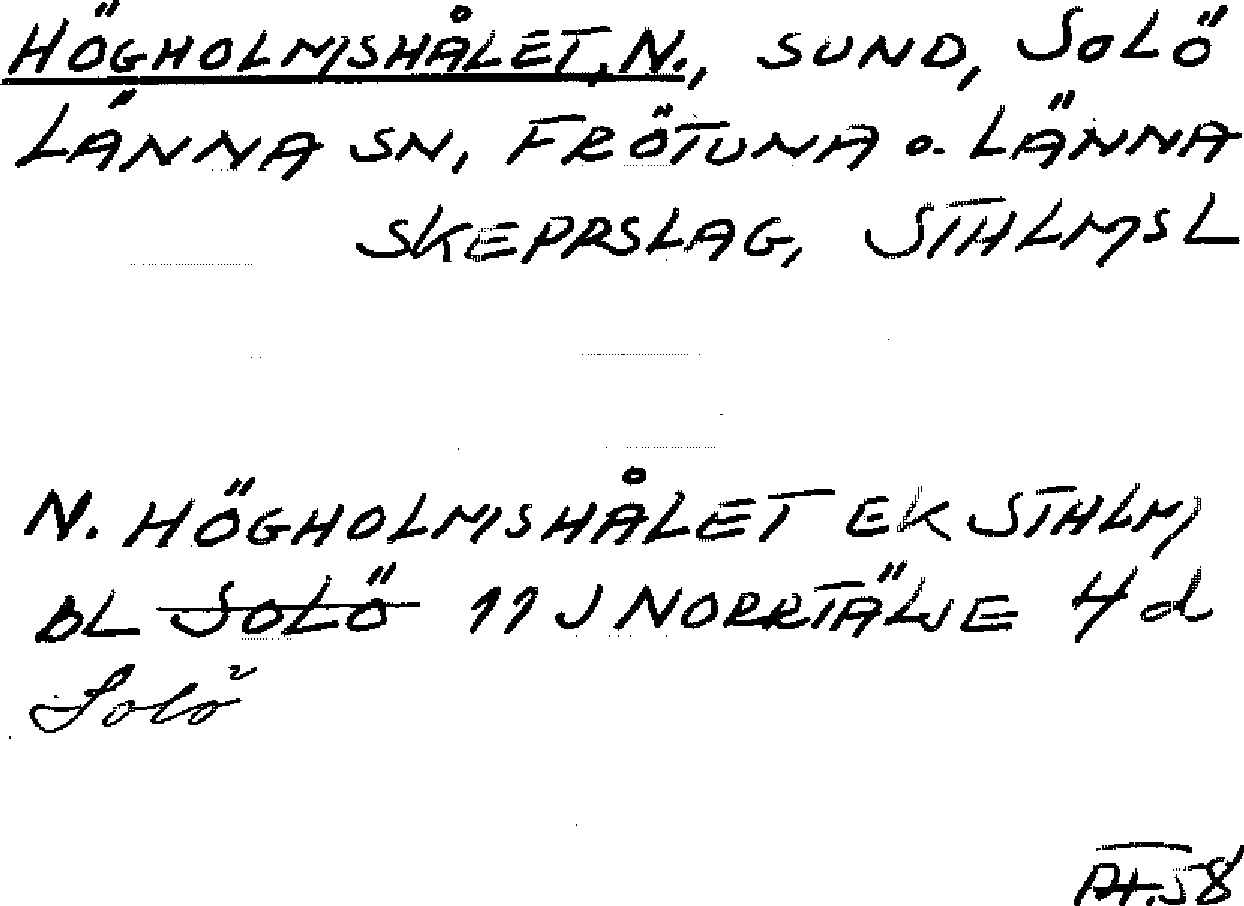 HÖGHOLMSHÅLET, N., SUND, SOLÖ
LÄNNA SN, FRÖTUNA O. LÄNNA
SKEPPSLAG, STHLMSL
N. HÖGHOLMSHÅLET EK STHLM
BL SOLÖ 11 J NORRTÄLJE 4 d
Solö